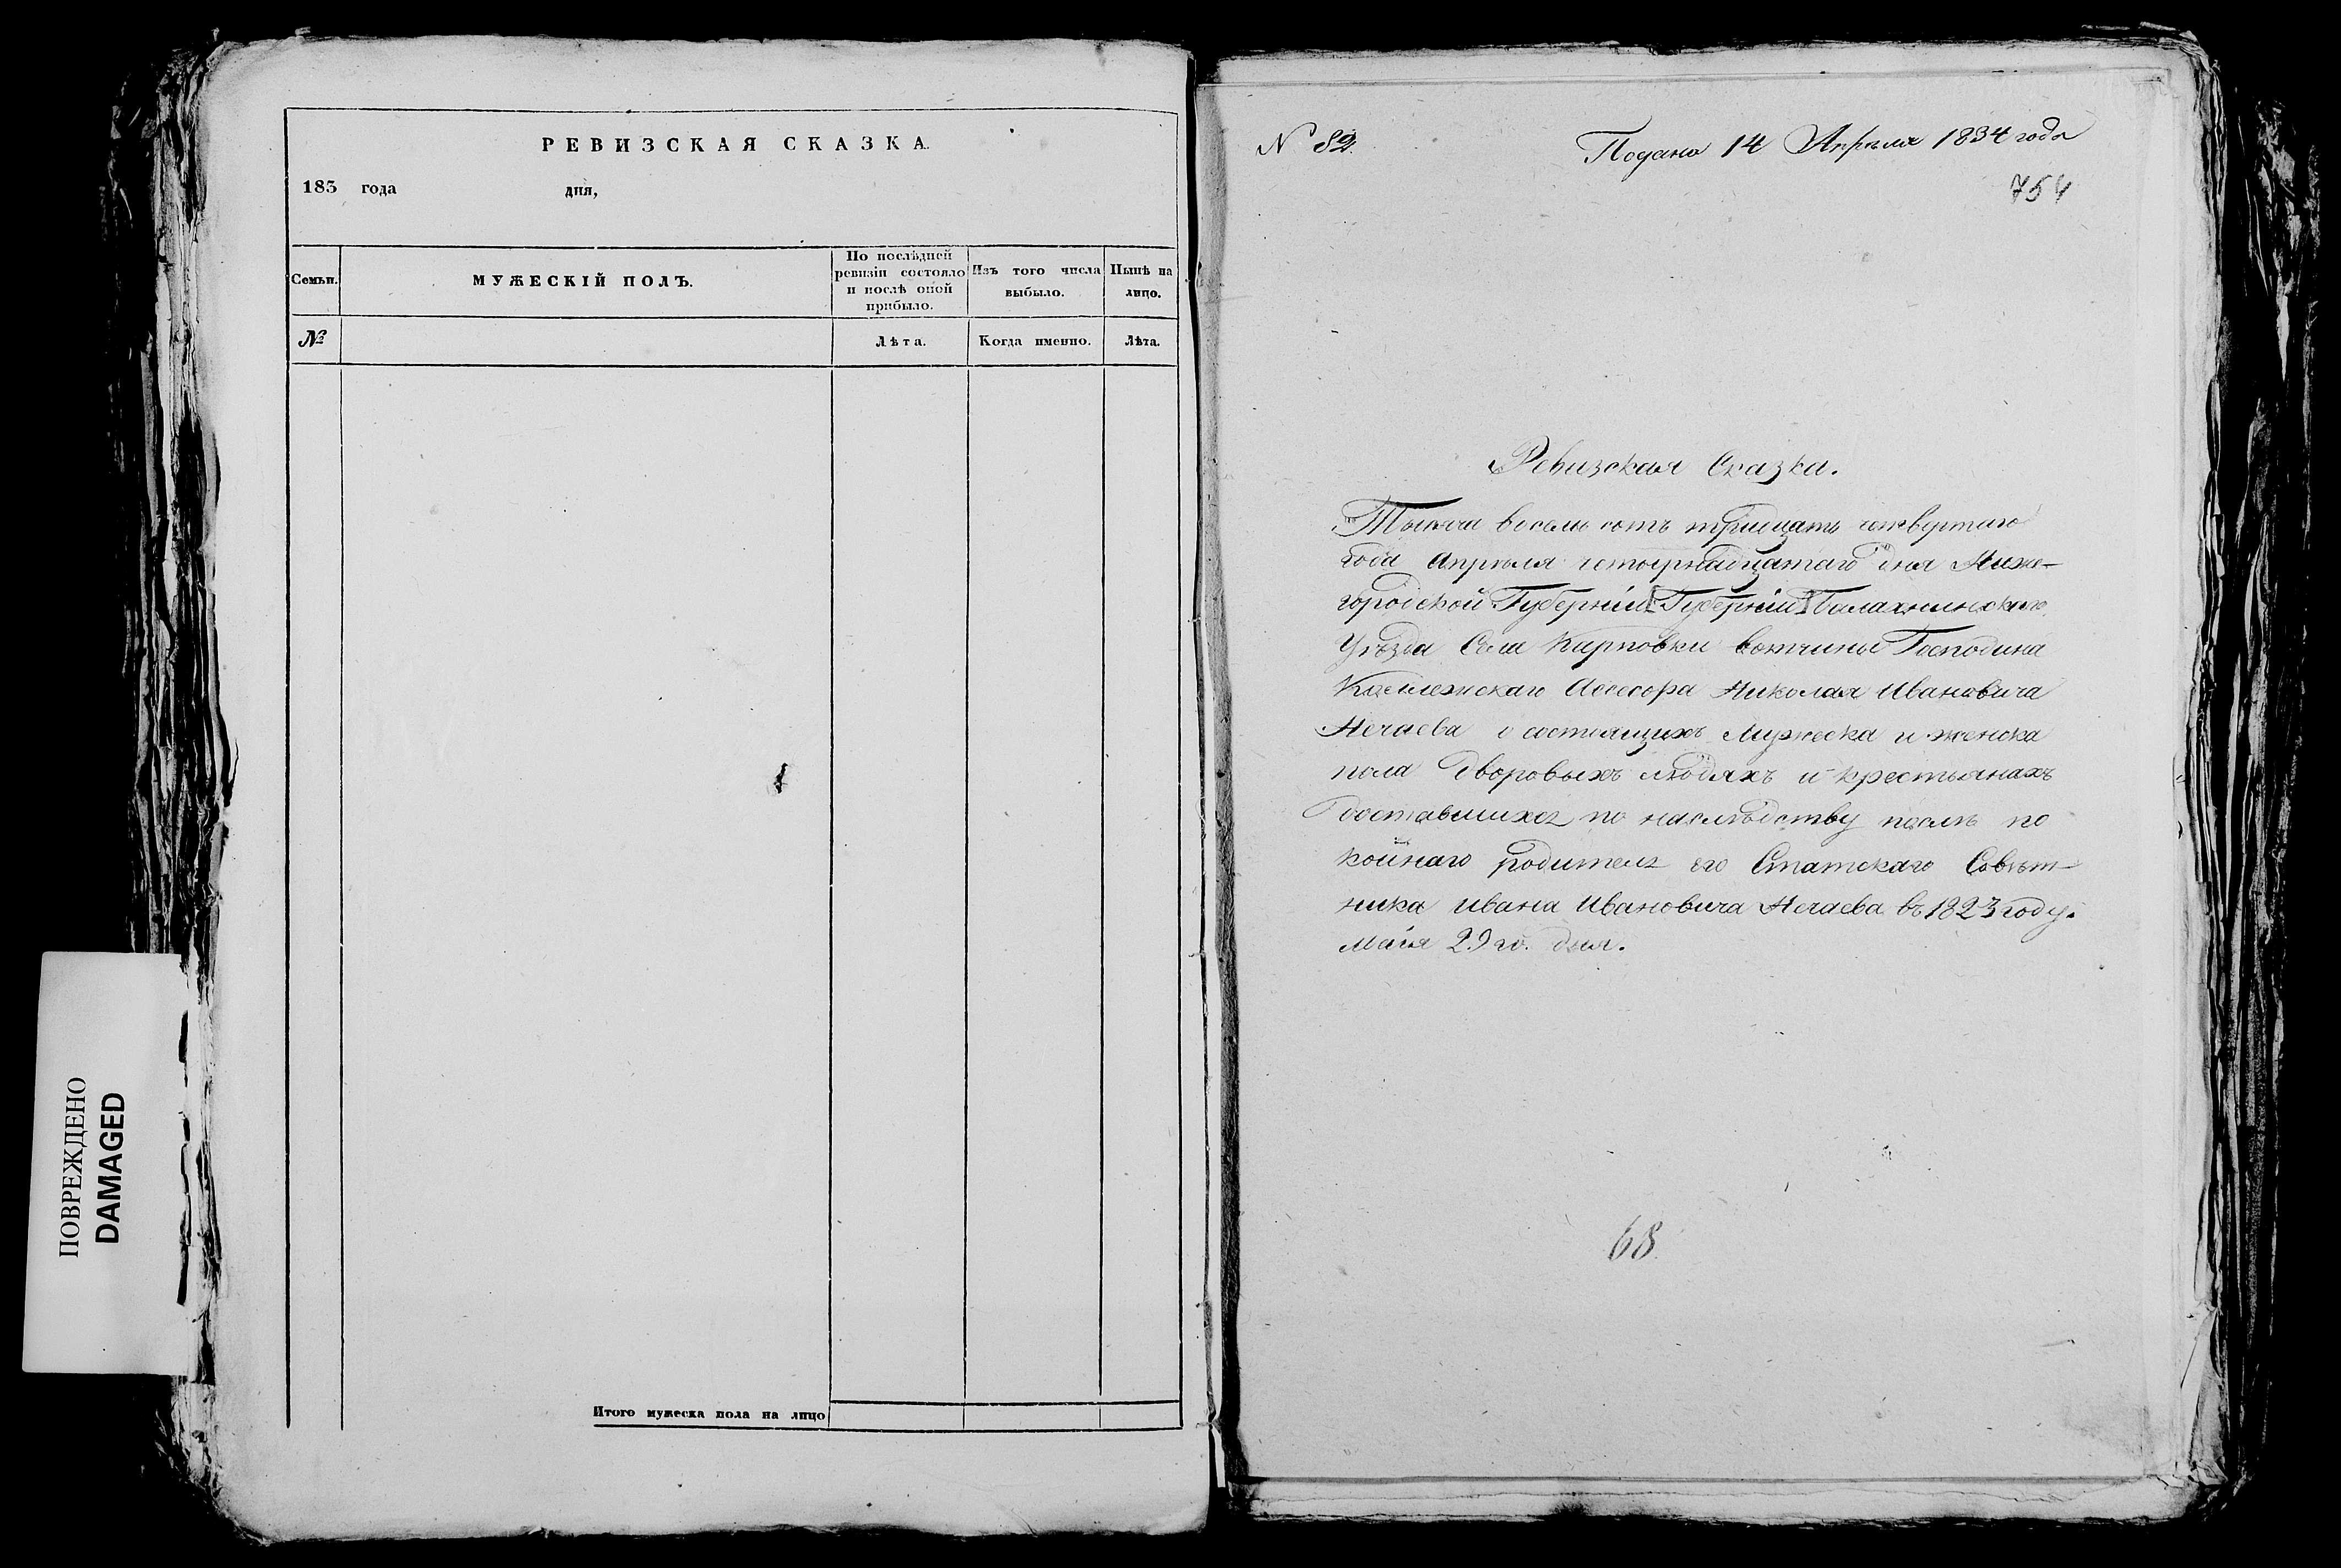 РЕВИЗСКАЯ СКАЗКА.
183 года дня,
Семьи.
МУЖЕСКІЙ ПОЛЪ.
По послѣдней
ревизіи состояло
и послѣ оной
прибыло.
Изъ того числа
выбыло.
Нынѣ на
лицо.
№
Лѣта.
Когда именно.
Лѣта.
Итого мужеска пола на лицо
ПОВРЕЖДЕНО
DAMAGED
N 82.
Подано 14 Апрѣля 1834 года
754
Ревизская Сказка.
Тысяча восемь сотъ тридцать четвертаго
года Апрѣля четырнадцатаго дня Ниже-
городской Губерніи [Губерніи] Балахнинскаго
Уѣзда Села Карповки вотчины Господина
Коллежскаго Асессора Николая Ивановича
Нечаева о состоящихъ Мужеска и женска
пола дворовыхъ людяхъ и крестьянахъ
доставшихся по наслѣдству послѣ по
койнаго родителя его Статскаго Совѣт-
ника Ивана Ивановича Нечаева въ 1823 году.
Маія 29 го. дня.
68